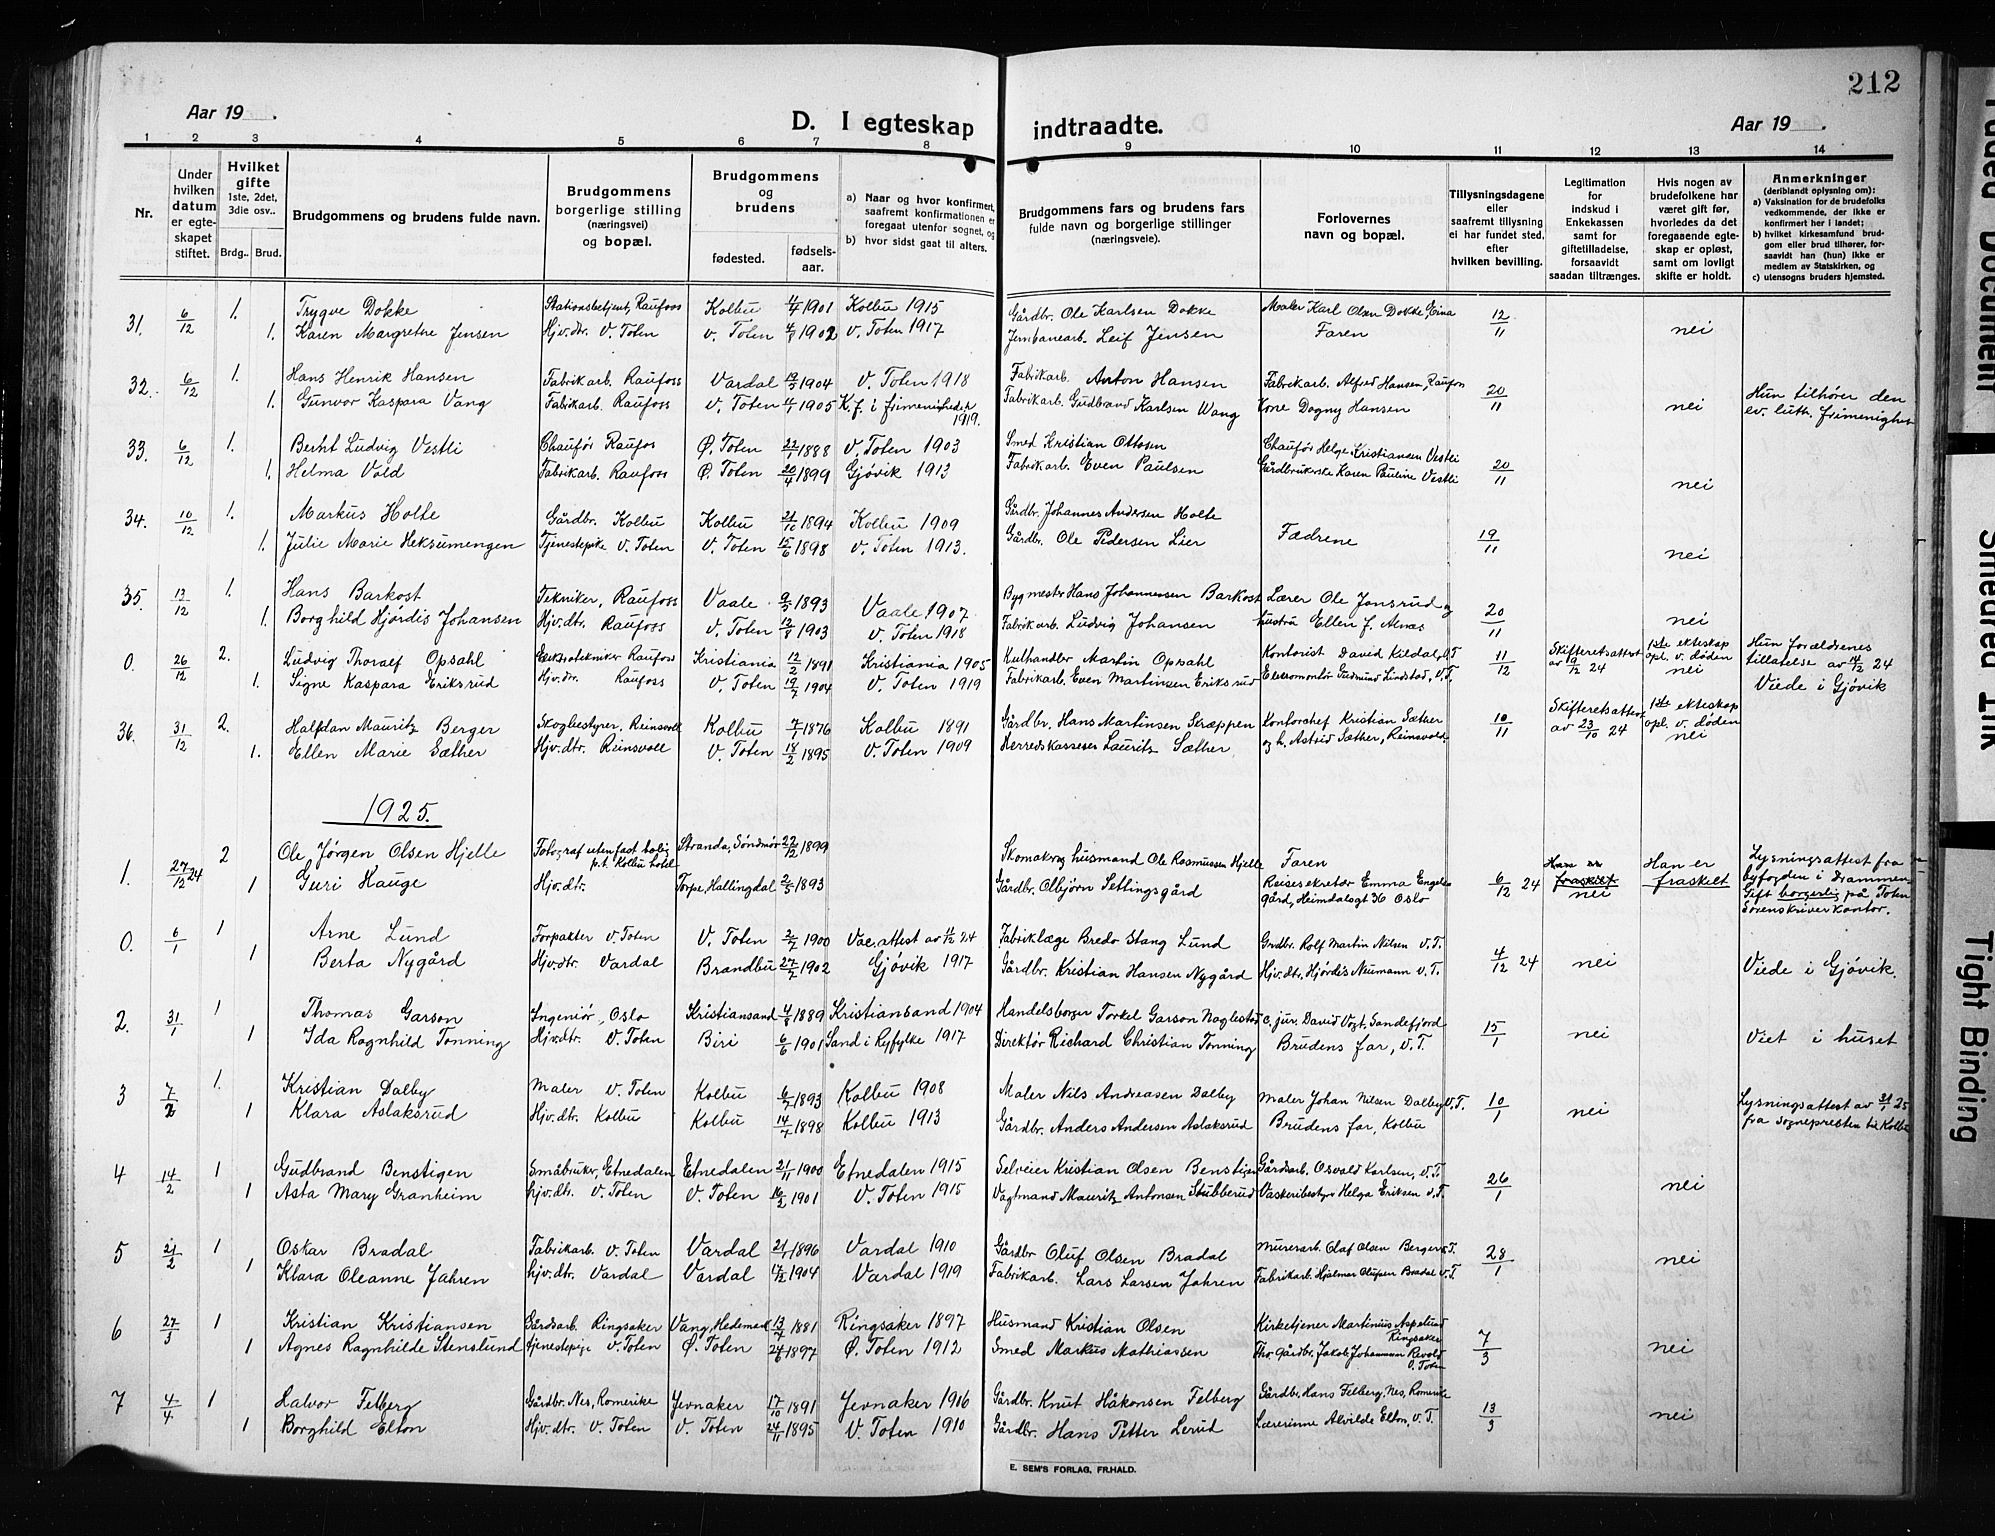 212
Aar 19
D. I egteskap indtraadte.
Aar 19
1 2 3 4 5 6 7 8 9 10 11 12 13 14
Nr.
Under hvilken datum er egteskapet stiftet.
Hvilket gifte 1ste, 2det, 3die osv..
Brdg..
Brud.
Brudgommens og brudens fulde navn.
Brudgommens borgerlige stilling (næringsvei) og bopæl.
Brudgommens og brudens
fødested.
fødselsaar.
a) Naar og hvor konfirmert, saafremt konfirmationen er foregaat utenfor sognet, og
b) hvor sidst gaat til alters.
Brudgommens fars og brudens fars fulde navn og borgerlige stillinger (næringsveie).
Forlovernes navn og bopæl.
Tillysningsdagene eller saafremt tillysning ei har fundet sted, efter hvilken bevilling.
Legitimation for indskud i Enkekassen samt for giftetilladelse, forsaavidt saadan tiltrænges.
Hvis nogen av brudefolkene har været gift før, hvorledes da det foregaaende egteskap er opløst, samt om lovligt skifte er holdt.
Anmerkninger (deriblandt oplysning om):
a) Vaksination for de brudefolks vedkommende, der ikke er konfirmert her i landet;
b) hvilket kirkesamfund brudgom eller brud tilhører, forsaavidt han (hun) ikke er medlem av Statskirken, og
c) utensogns bruders hjemsted.
31. 6/12 1. Trygve Dokke Stationsbetjent, Raufoss Kolbu 4/4 1901 Kolbu 1915 Gårdbr. Ole Karlsen Dokke Maler Karl Olsen Dokke Eina 12/11
1. Karen Margrethe Jensen Hjv.dtr. V. Toten V. Toten 1902 V. Toten 1917 Jernbanearb. Leif Jensen Faren nei
32. 6/12 1. Hans Henrik Hansen Fabrikarb. Raufoss Vardal 1904 V. Toten 1918 Fabrikarb. Anton Hansen Fabrikarb. Alfred Hansen, Raufoss 20/11 Hun tilhører den
1. Gunvor Kaspara Vang Fabrikarb. Raufoss V. Toten 1905 K.f. i frimenigheden 1919. Fabrikarb. Gudbrand Karlsen Wang Kone Dagny Hansen nei ev. luth. frimenighet
33. 6/12 1. Bernt Ludvig Vestli Chaufør Raufoss Ø. Toten 22/1 1888 V. Toten 1903 Smed Kristian Ottosen Chaufør Helge Kristiansen Vestli 20/11
1. Helma Vold Fabrikarb. Raufoss Ø. Toten 20/4 1899 Gjøvik 1913 Fabrikarb. Even Paulsen Gårdbrukerske Karen Pauline Vestli nei
34. 10/12 1. Markus Holte Gårdbr. Kolbu Kolbu 21/10 1894 Kolbu 1909 Gårdbr. Johannes Andersen Holte
1. Julie Marie Heksumengen Tjenestepike V. Toten V. Toten 15/6 1898 V. Toten 1913. Gårdbr. Ole Pedersen Lier Fædrene 19/11 nei
35. 13/12 1. Hans Barkost Tekniker, Raufoss Vaale 9/5 1893 Vaale 1907 Bygmester Hans Johannessen Barkost Lærer Ole Jonsrud og 20/11
1. Borghild Hjørdis Johansen Hjv.dtr. Raufoss V. Toten 13/8 1903 V. Toten 1918 Fabrikarb. Ludvig Johansen hustru Ellen f. Alnæs nei
0. 26/12 2. Ludvig Thoralf Opsahl Elektrotekniker Raufoss Kristiania 12/2 1891 Kristiania 1905 Kulhandler Martin Opsahl Kontorist David Kildal, V.T. 11/12 Skifteretsattest av 19/12 24 1ste ekteskap opl. v. døden nei Hun forældrenes tillatelse av 14/12 24
1. Signe Kaspara Eriksrud Hjv.dtr. Raufoss V. Toten 19/7 1904 V. Toten 1919 Fabrikarb. Even Martinsen Eriksrud Elektromontør Gudmund Lindstad, V.T. Viede i Gjøvik
36. 31/12 2. Halfdan Mauritz Berger Skogbestyrer, Reinsvoll Kolbu 7/1 1876 Kolbu 1891 Gårdbr. Hans Martinsen Skræppen Kontorchef Kristian Sæther 10/11 Skifteretsattest av 23/10 24 1ste ekteskap opl. v. døden nei
1. Ellen Marie Sæther Hjv.dtr. Reinsvoll V. Toten 18/2 1895 V. Toten 1909 Herredskasserer Lauritz Sæther og h. Astrid Sæther, Reinsvold
1925.
1. 27/12 24 2 Ole Jørgen Olsen Hjelle Fotograf uten fast bolig p.t. Kolbu hotel Stranda, Søndmør 22/12 1899 Skomaker og husmand Ole Rasmussen Hjelle Faren 6/12 24 Han er fraskilt nei Han er fraskilt Lysningsattest fra byfogden i Drammen.
1 Guri Hauge Hjv.dtr. Torpe, Hallingdal 2/5 1893 Gårdbr. Olbjørn Settingsgård Reisesekretær Emma Engelsgård, Heimdalsgt 36 Oslo Gift borgerlig på Toten Sorenskriverkontor.
0. 6/1 1 Arne Lund Forpakter V. Toten V. Toten 2/7 1900 Vac. attest av 11/12 24 Fabriklæge Bredo Stang Lund Grdbr. Rolf Martin Nilsen V.T. 4/12 24 nei
1 Berta Nygård Hjv.dtr. Vardal Brandbu 27/7 1902 Gjøvik 1917 Gårdbr. Kristian Hansen Nygård Hjv.dtr. Hjørdis Neumann V.T. Viede i Gjøvik.
2. 31/1 1 Thomas Garson Ingeniør, Oslo Kristiansand 4/8 1889 Kristiansand 1904 Handelsborger Torkel Garson Naglestad C. jur. David Vogt, Sandefjord 15/1 nei Viet i huset
1 Ida Ragnhild Tønning Hjv.dtr. V. Toten Biri 6/6 1901 Sand i Ryfylke 1917 Direktør Richard Christian Tønning Brudens far, V.T.
3 7/2 1. Kristian Dalby Maler V. Toten Kolbu 1893 Kolbu 1908 Maler Nils Andreasen Dalby Maler Johan Nilsen Dalby V.T. 10/1 nei Lysningsattest av 31/1 25
1 Klara Aslaksrud Hjv.dtr. Kolbu Kolbu 14/7 1898 Kolbu 1913 Gårdbr. Anders Andersen Aslaksrud Brudens far, Kolbu fra sognepresten til Kolbu
4 14/2 1 Gudbrand Benstigen Småbruker, Etnedalen Etnedalen 21/11 1900 Etnedalen 1915 Selveier Kristian Olsen Benstigen Gårdsarb. Osvald Karlsen, V.T. 26/1
1 Asta Mary Granheim Hjv.dtr. V. Toten V. Toten 16/2 1901 V. Toten 1915 Vagtmand Mauritz Antonsen Stubberud Vaskeribestyr. Helga Eriksen V.T. nei
5 21/2 1 Oskar Bradal Fabrikarb. V. Toten Vardal 21/1 1896 Vardal 1910 Gårdbr Oluf Olsen Bradal Murerarb. Olaf Olsen Berger V.T. 28/1
1 Klara Oleanne Jahren Hjv.dtr. Vardal Vardal 1904 Vardal 1919 Fabrikarb. Lars Larsen Jahren Fabrikarb. Hjalmar Olufsen Bradal V.T. nei
6 27/3 1 Kristian Kristiansen Gårdsarb. Ringsaker Vang, Hedemark 13/7 1881 Ringsaker 1897 Husmand Kristian Olsen Kirketjener Martinius Aspelund Ringsaker 7/3
1 Agnes Ragnhilde Stenslund Tjenestepige V. Toten Ø. Toten 24/6 1897 Ø. Toten 1912 Smed Markus Mathiassen Fho. gårdbr. Jakob Johannsen Revold V. Toten nei
7 4/4 1 Halvor Felberg Gårdbr. Nes, Romerike Jevnaker 17/10 1891 Jevnaker 1906 Gårdbr. Knut Håkonsen Felberg Gårdbr. Hans Felberg, Nes, Romerike 13/3
1 Borghild Elton Hjv.dtr. V. Toten V. Toten 24/11 1895 V. Toten 1910 Gårdbr. Hans Petter Lerud Lærerinne Alvilde Elton, V.T. nei
E. SEM'S FORLAG, FR.HALD.
Faded Document
Smeared Ink
Tight Binding